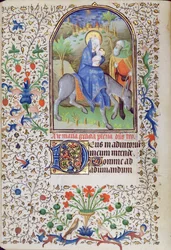 Aue maria gratia plena
Deus in adiutoriu
meum intende.
Domine ad
adiuuandum